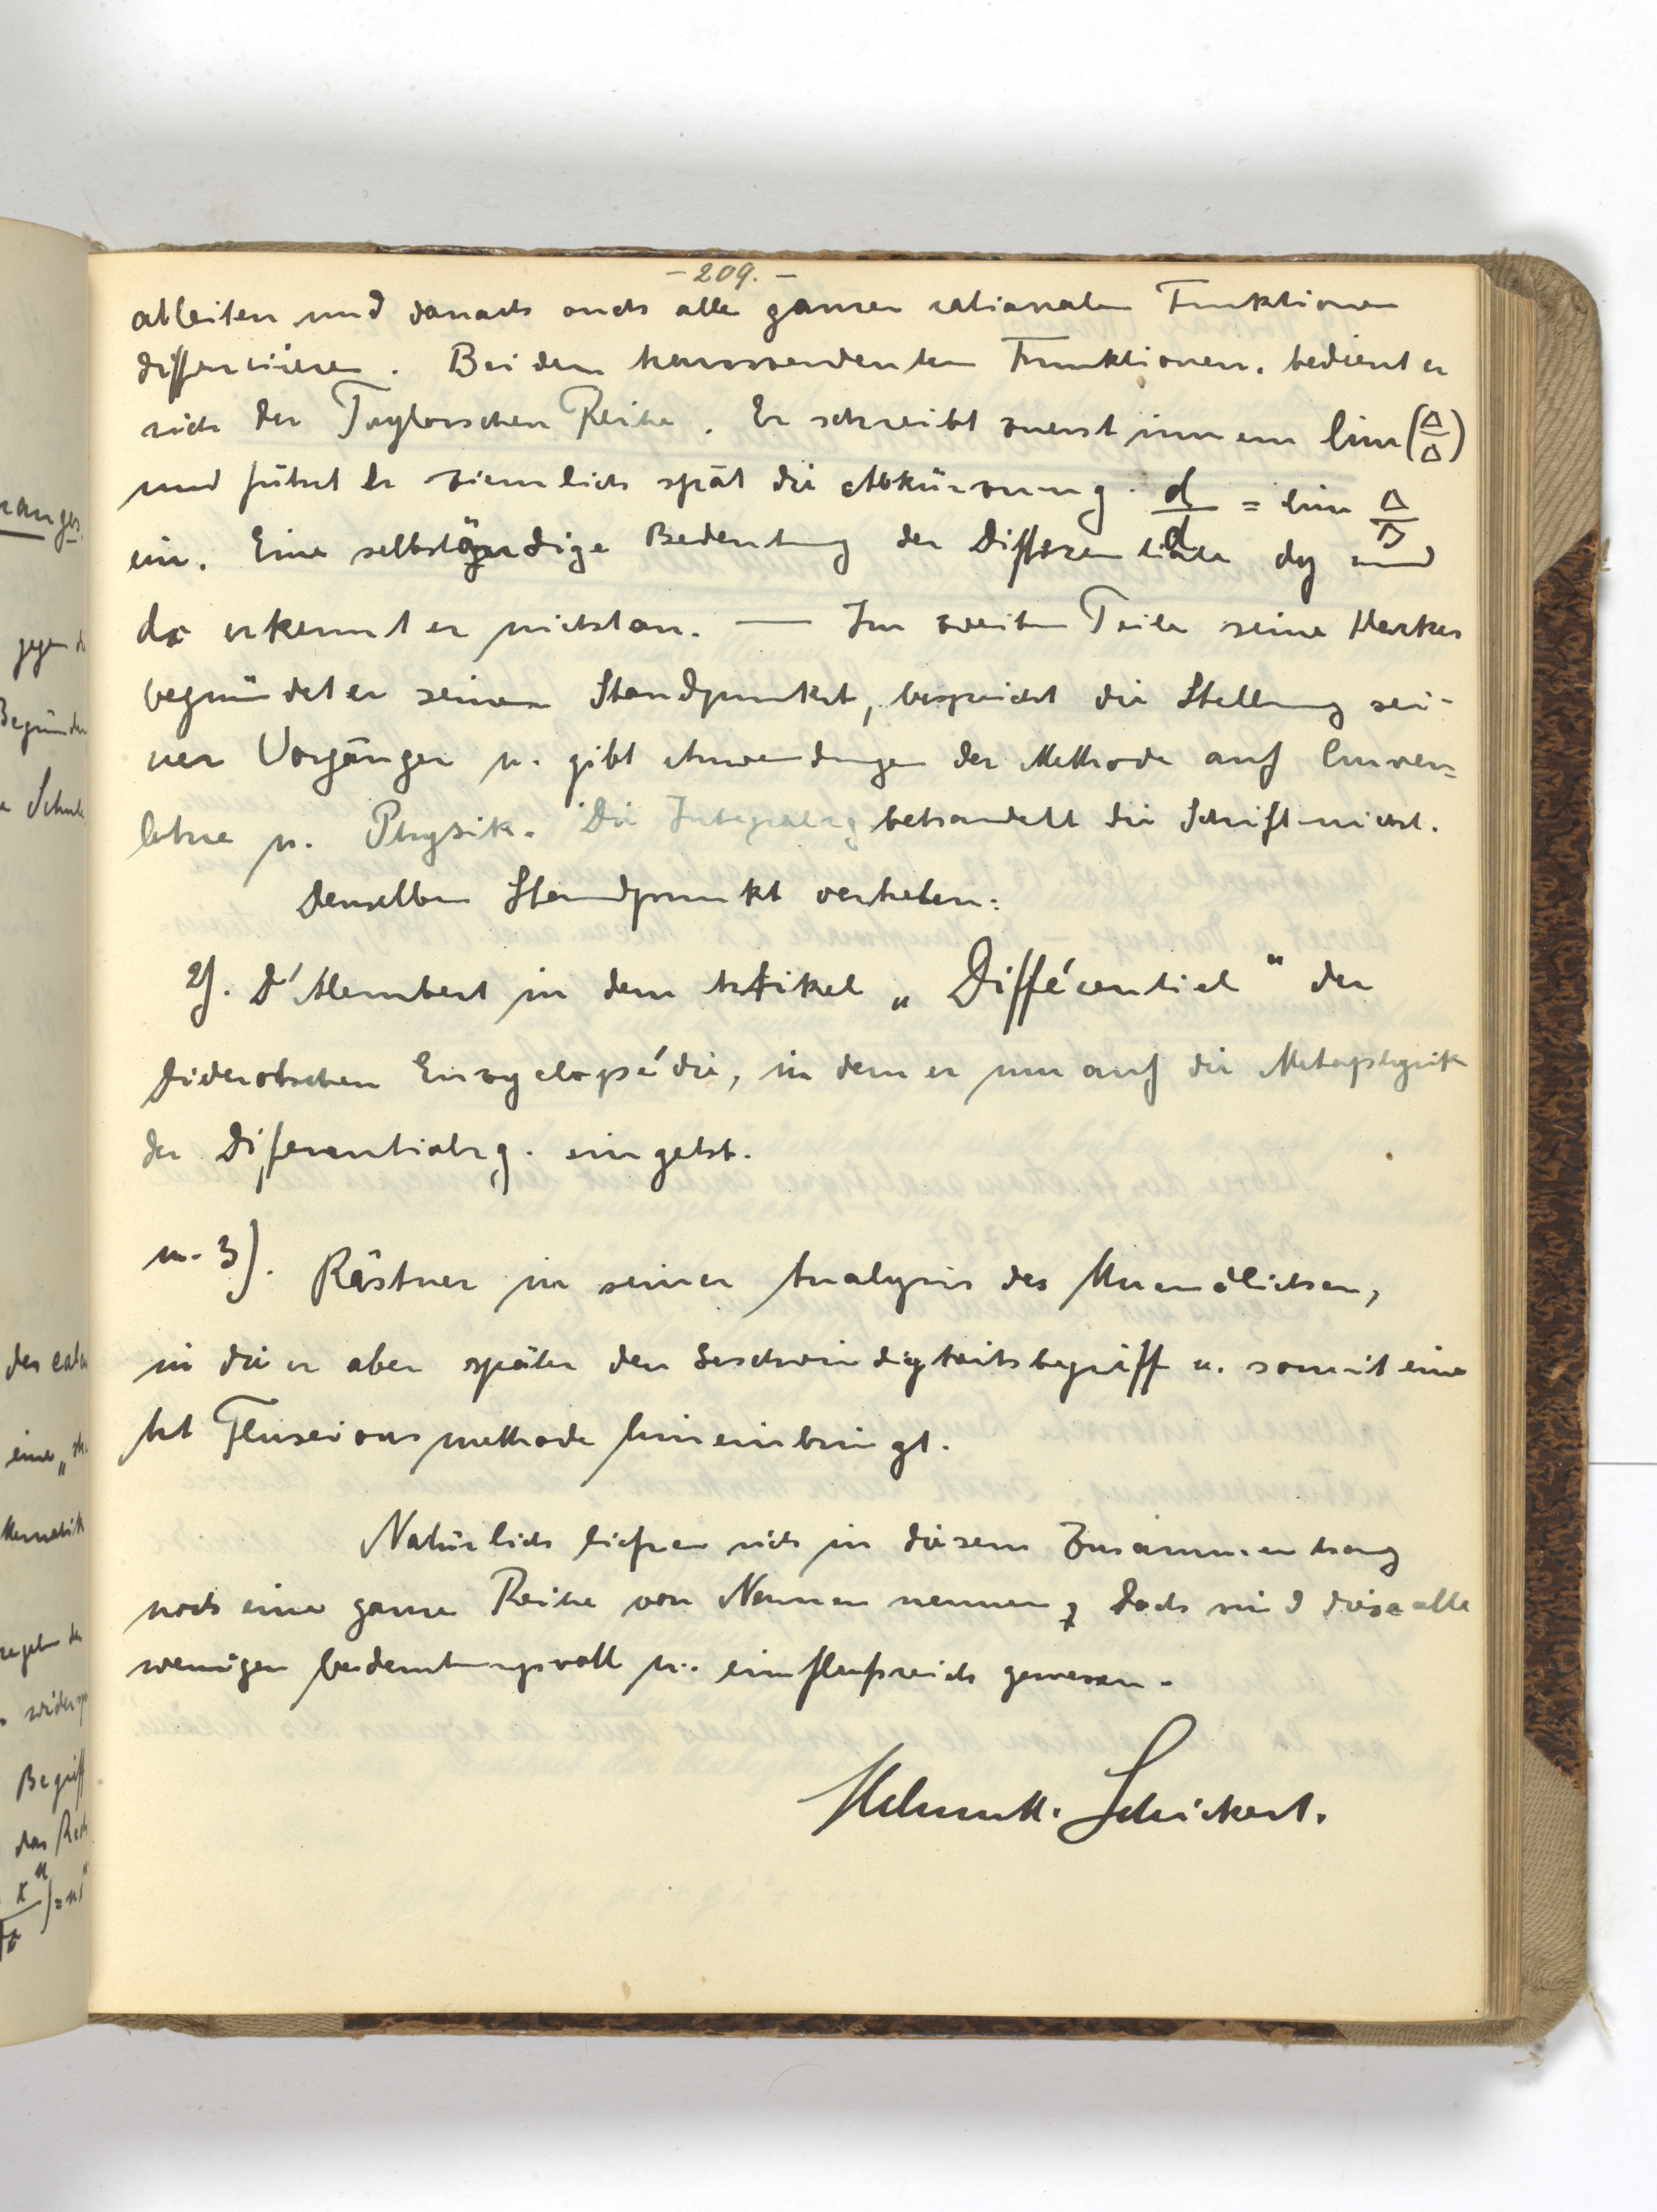 - 209. -
ableiten und danach auch alle ganzen rationalen Funktionen
differenzieren. Bei den transzendenten Funktionen bedient er
sich der Taylorschen Reihe. Er schreibt zuerst immer lim (Δ/Δ)
und führt er ziemlich spät die Abkürzung d/d = lim Δ/Δ
ein. Eine selbständige Bedeutung der Differentiale dy und
dx erkennt er nicht an. — Im zweiten Teile seines Werkes
begründet er seinen Standpunkt, bespricht die Stellung sei-
ner Vorgänger u. gibt Anwendungen der Methode auf Curven=
lehre u. Physik. Die Integralrg behandelt die Schrift nicht.
Denselben Standpunkt vertreten:
2). D'Alembert in dem Artikel „Différentiel" der
Diderotschen Encyclopédie, in dem er nur auf die Metaphysik
der Differentialrg. eingeht.
u. 3). Kästner in seiner Analysis des Unendlichen,
in die er aber später den Geschwindigkeitsbegriff u. somit eine
Art Fluxionsmethode hineinbringt.
Natürlich ließen sich in diesem Zusammenhang
noch eine ganze Reihe von Namen nennen, doch sind diese alle
weniger bedeutungsvoll u. einflußreich gewesen.
Helmuth Schickert.
ranges.
gegen di
Begründen
Schule
des calc
eine „
thematik
regeln de
widersp
Begriff
das Rech